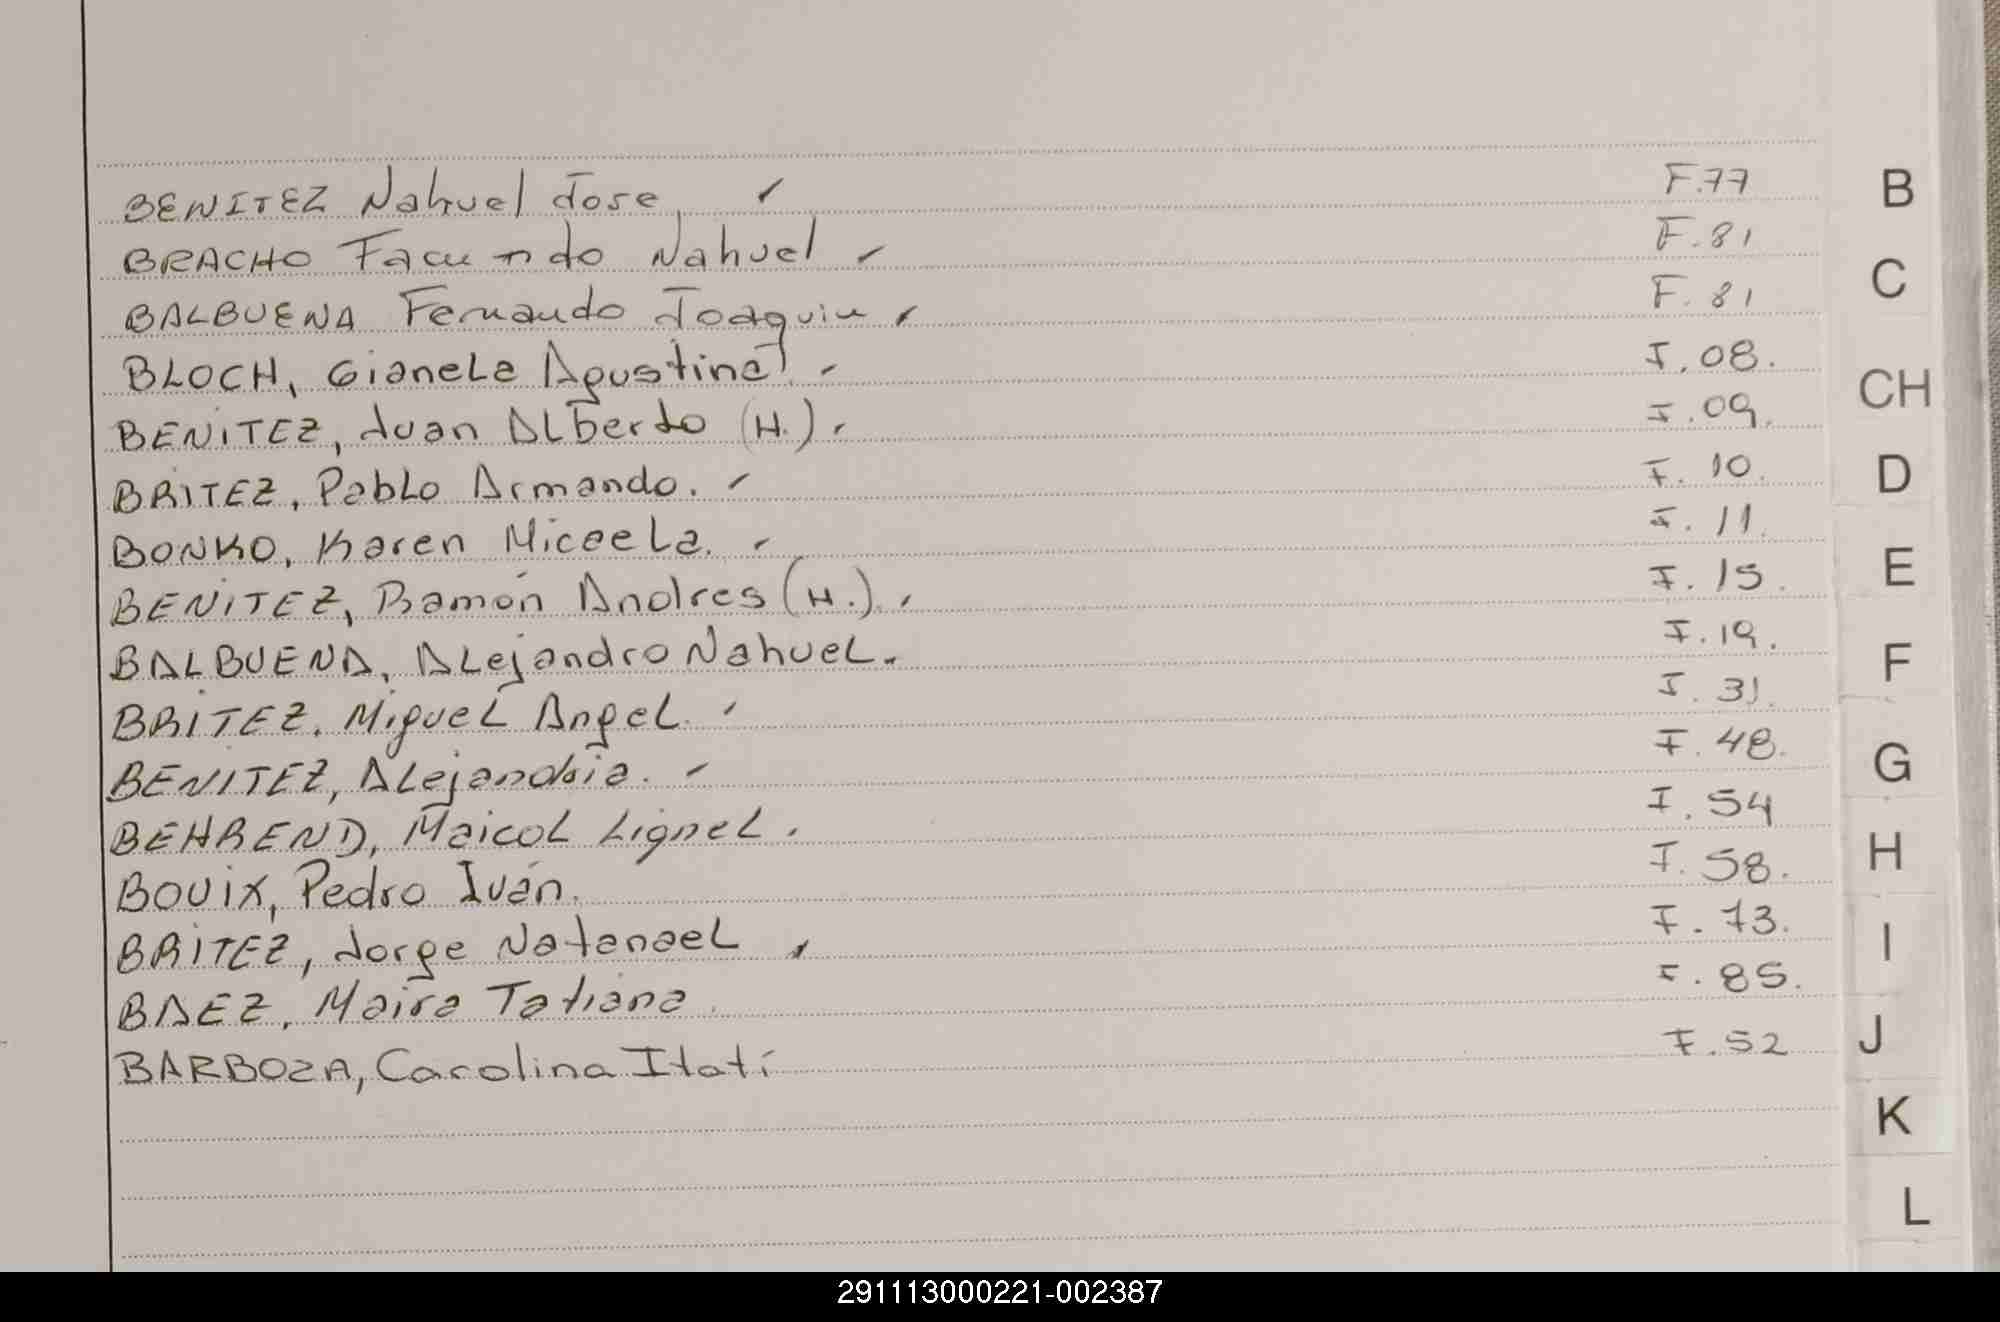 BENITEZ Nahuel Jose F.77
BRACHO Facundo Nahuel F.81
BALBUENA Fernando Joaquin F.81
BLOCH, Gianela Agustina F.08.
BENITEZ, Juan Alberto (H.). F.09.
BRITEZ, Pablo Armando. F.10.
BONKO, Karen Micaela. F.11.
BENITEZ, Ramón Andres (H.). F.15.
BALBUENA, Alejandro Nahuel. F.19.
BRITEZ. Miguel Angel. F.31.
BENITEZ, Alejandria. F.48.
BEHREND, Maicol Lignel. F.54
BOUIX, Pedro Iván. F.58.
BRITEZ, Jorge Natanael F.73.
BAEZ, Maira Tatiana. F.85.
BARBOZA, Carolina Itatí F.52
B
C
CH
D
E
F
G
H
I
J
K
L
291113000221-002387